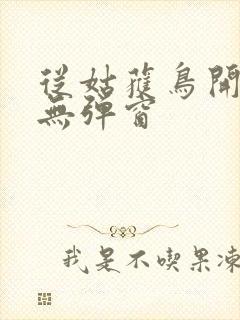 從姑獲鳥開
無彈窗
我是不喫果凍